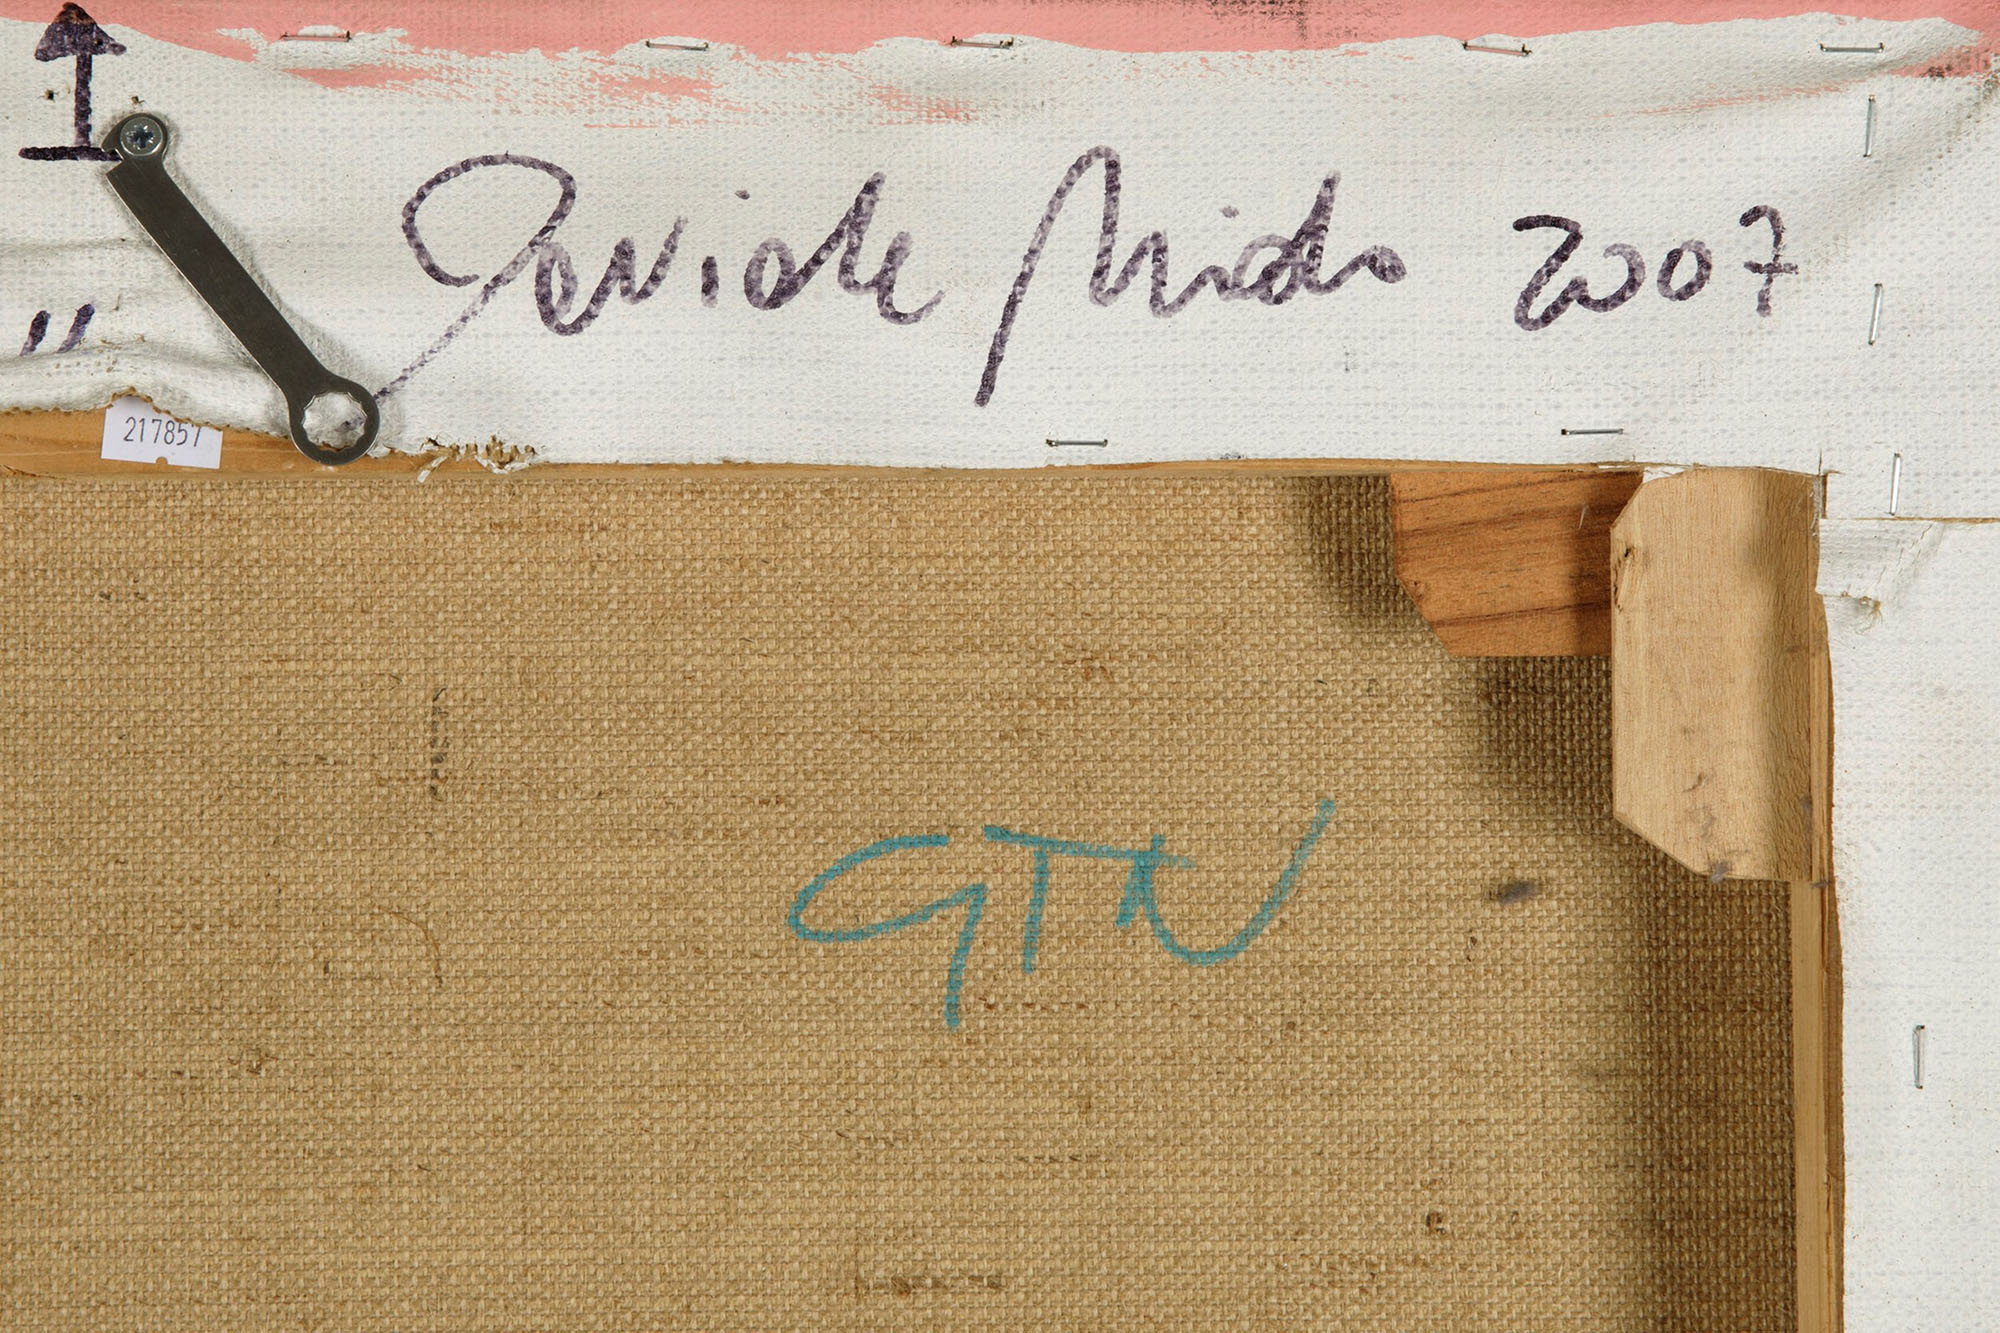 Davide Nido 2007
"
217857
GTN